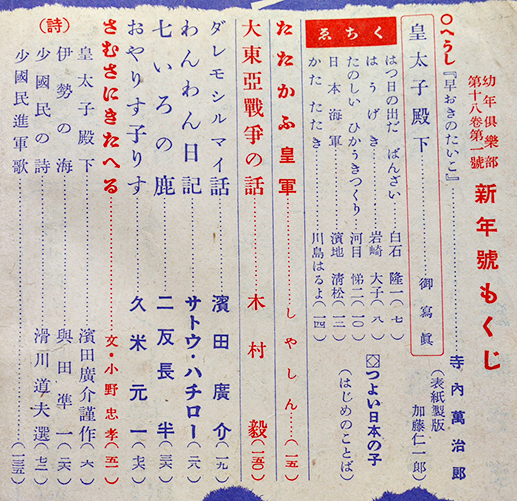 幼年倶樂部
第十八卷第一號
新年號もくじ
○へうし『早おきのたいこ』……寺內萬治郎
(表紙製版 加藤仁一郎)
皇太子殿下……御寫眞
くちゑ
はつ日の出だ ばんざい…白石 隆一(七)
はうげき…岩崎 大子(八)
たのしい ひかうきつくり…河目 悌二(一〇)
日本海軍…濱地 淸松(一二)
かたたたき…川島はるよ(一四)
つよい日本の子
(はじめのことば)
たたかふ皇軍……しやしん…(一五)
大東亞戰爭の話……木村 毅(一五〇)
ダレモシルマイ話……濱田廣介(一九)
わんわん日記……サトウ・ハチロー(二八)
七いろの鹿……二反長 半(三六)
おやりす子りす……久米元一(七六)
さむさにきたへる……文・小野忠孝(五一)
(詩)
皇太子殿下……濱田廣介謹作(六)
伊勢の海……與田準一(二六)
少國民の詩……滑川道夫選(七二)
少國民進軍歌……(一三五)